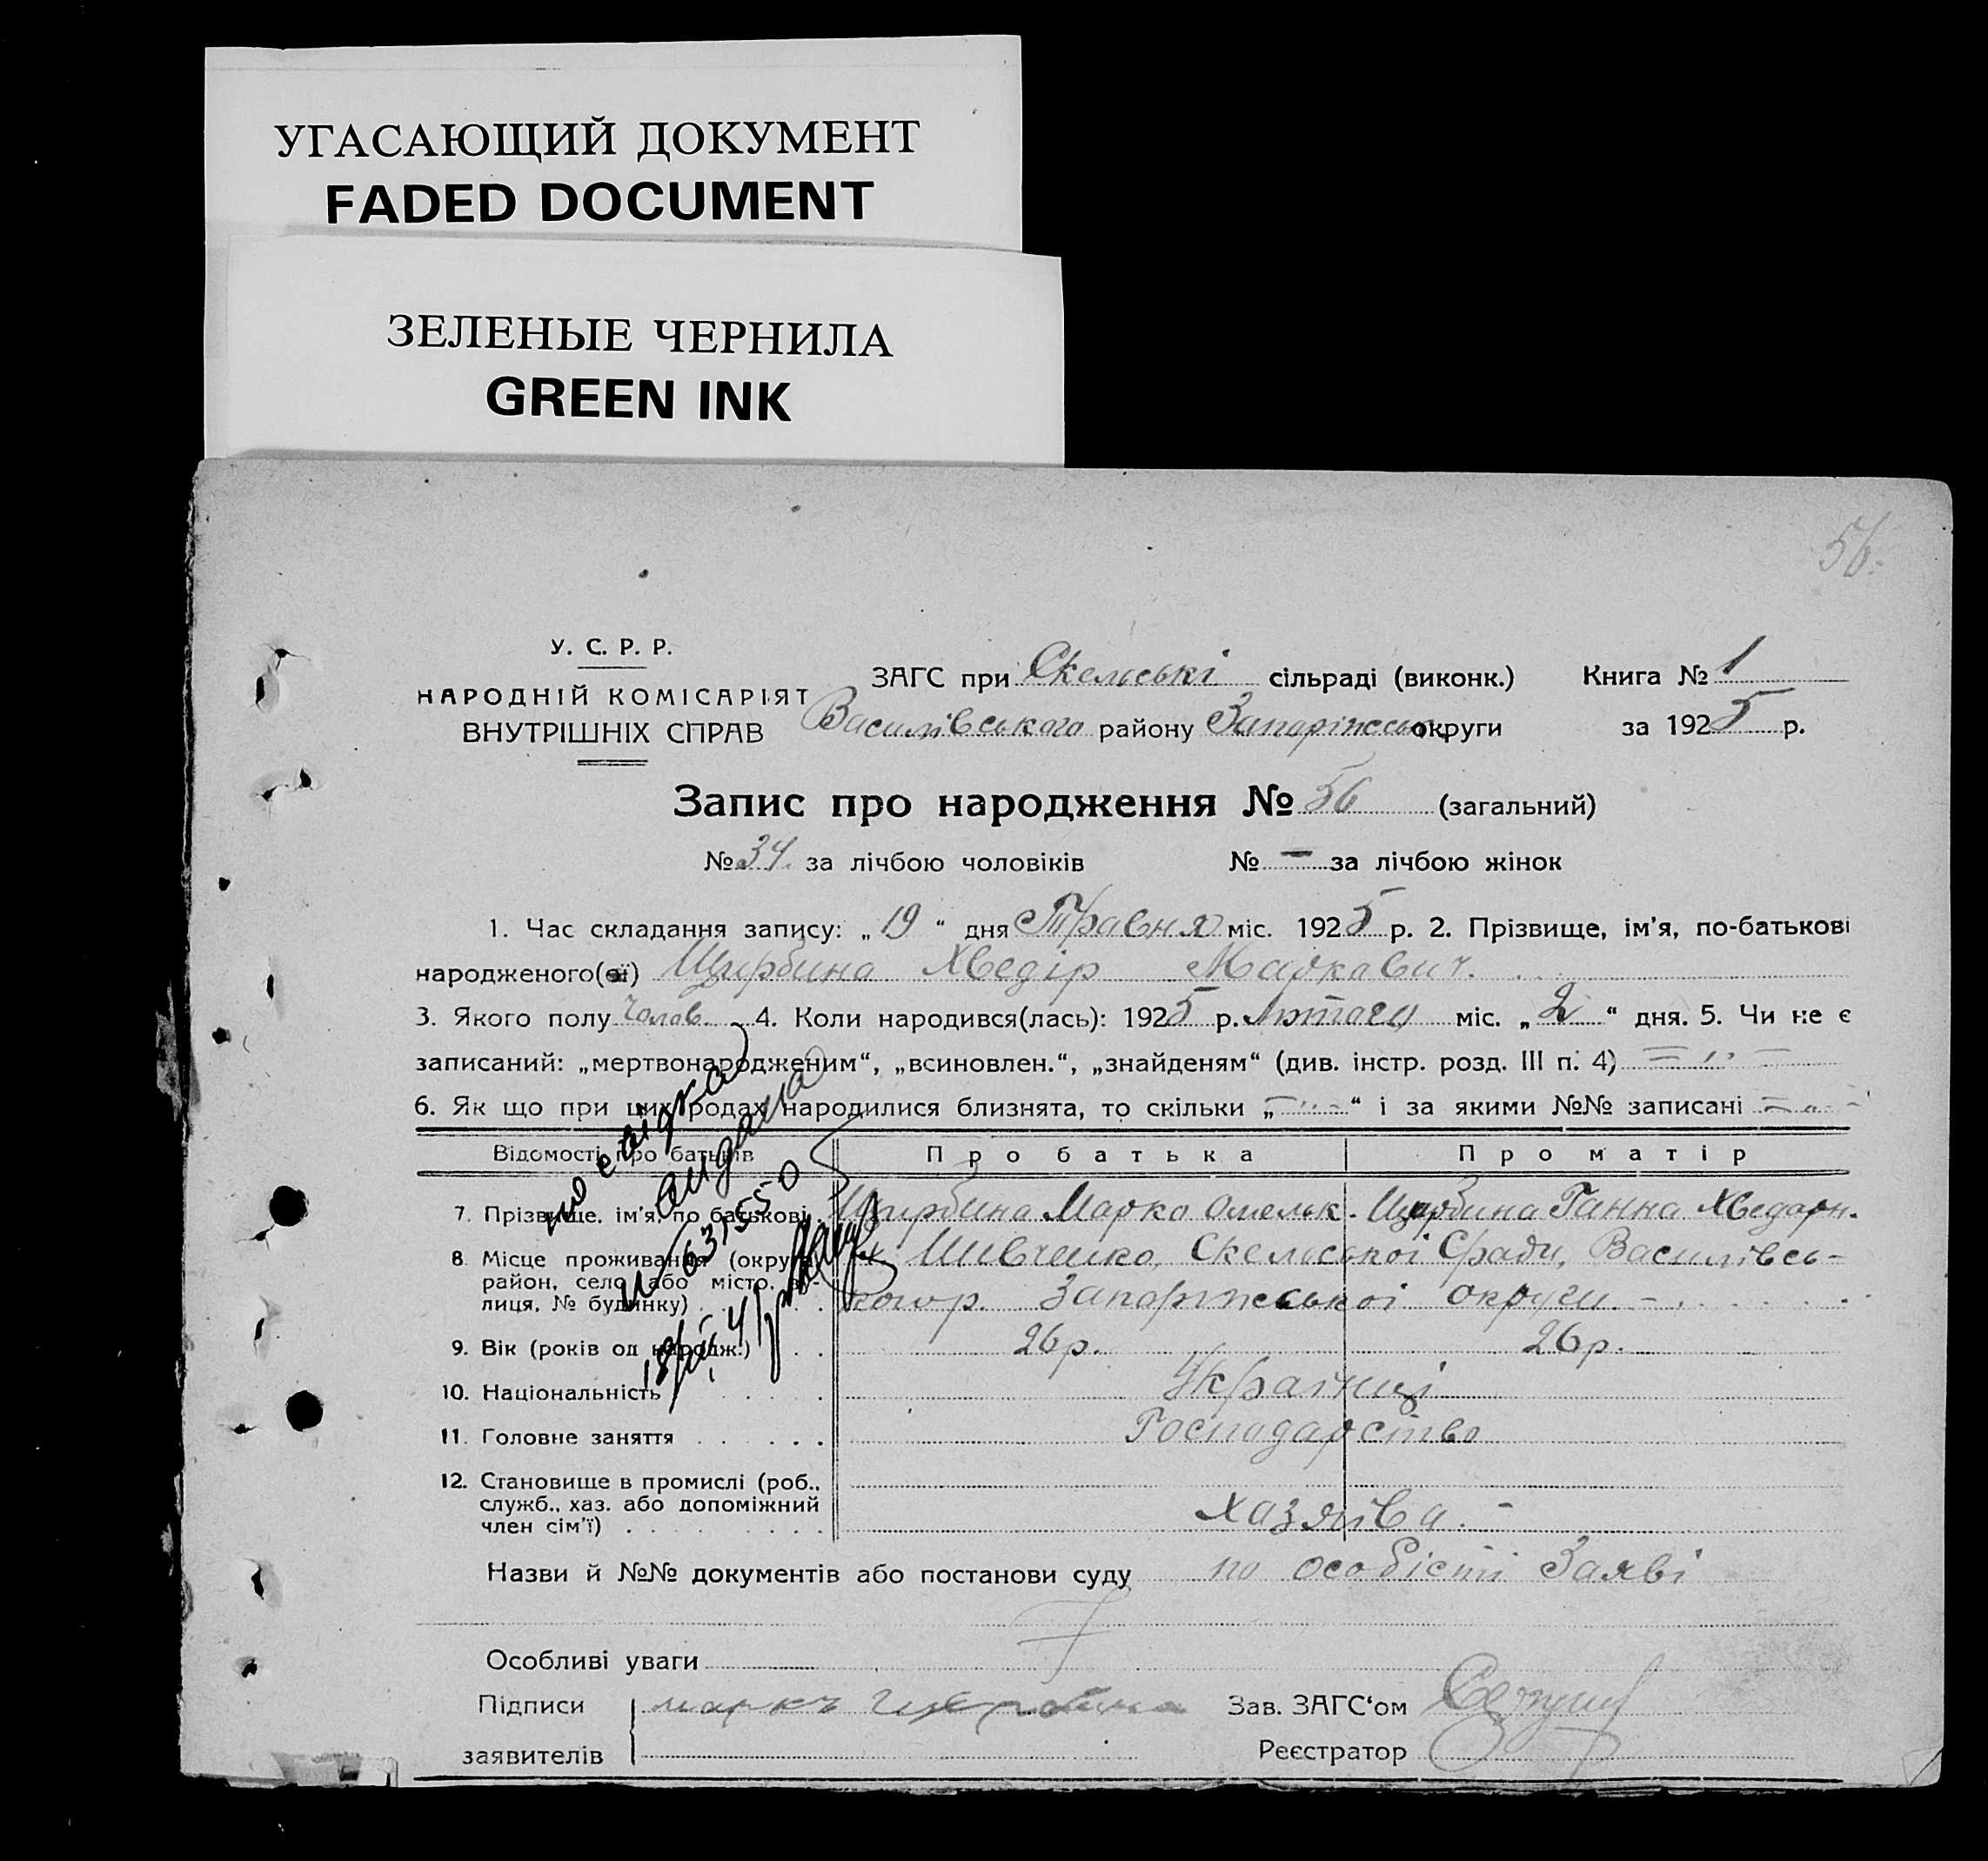 УГАСАЮЩИЙ ДОКУМЕНТ
FADED DOCUMENT
ЗЕЛЕНЫЕ ЧЕРНИЛА
GREEN INK
56.
У. С. Р. Р.
НАРОДНІЙ КОМІСАРІЯТ
ВНУТРІШНІХ СПРАВ
ЗАГС при Скельські сільраді (виконк.) Книга № 1
Василівського району Запоріжськ. округи за 1925 р.
Запис про народження № 56 (загальний)
№ 34. за лічбою чоловіків № — за лічбою жінок
1. Час складання запису: „ 19 “ дня Травня міс. 1925 р. 2. Прізвище, ім'я, по-батькові
народженого(ої) Щирбина Хведір Маркович.
3. Якого полу Чолов. 4. Коли народився(лась): 1925 р. Лютого міс. „ 2 “ дня. 5. Чи не є
записаний: „мертвонародженим“, „всиновлен.“, „знайденям“ (див. інстр. розд. III п. 4)
6. Як що при цих родах народилися близнята, то скільки „ “ і за якими №№ записані
Відомості про батьків Про батька Про матір
7. Прізвище, ім'я, по батькові Щирбина Марко Омельк. Щирбина Ганна Хведорн.
8 Місце проживання (округа, район, село або місто, ву-лиця, № будинку) х. Шивченко, Скельської Сради, Василівсь-
кого р. Запоріжської округи.
9. Вік (років од народж.) 26 р. 26 р.
10. Національність Українці
11. Головне заняття Господарство
12. Становище в промислі (роб., служб., хаз. або допоміжний член сім'ї) хазяїва.
Назви й №№ документів або постанови суду по особісті Заяві
Особливі уваги
Підписи маркъ щербина Зав. ЗАГС‘ом
заявителів Реєстратор
видана